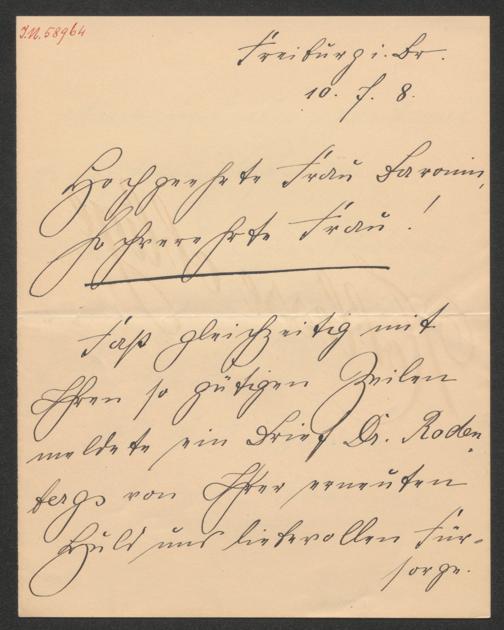 J.N. 58964
Freiburg i. Br.
10. 7. 8.
Hochgeehrte Frau Baronin,
hochverehrte Frau!
Fast gleichzeitig mit
Ihren so gütigen Zeilen
meldete ein Brief Dr. Roden-
bergs von Ihrer erneuten
Huld und liebevollen Für-
sorge.